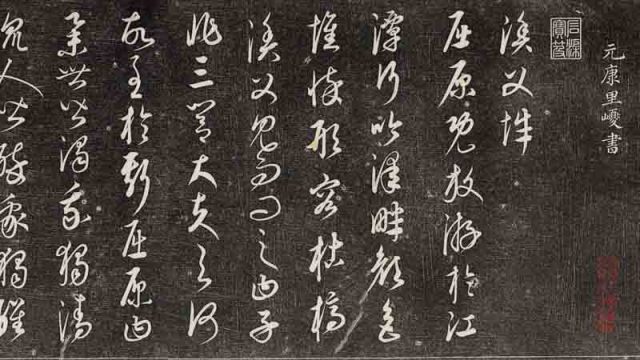 元康里巎書
石渠寶笈
漁父辭
屈原既放游於江
潭行吟澤畔顏色
憔悴形容枯槁
漁父見而問之曰子
非三閭大夫與何
故至於斯屈原曰
舉世皆濁我獨清
眾人皆醉我獨醒